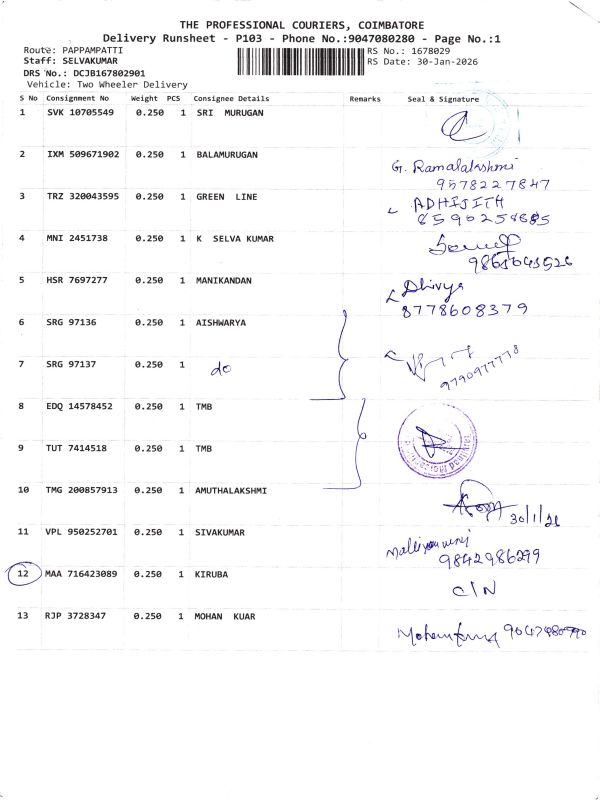 THE PROFESSIONAL COURIERS, COIMBATORE
Delivery Runsheet - P103 - Phone No.:9047080280 - Page No.:1
Route: PAPPAMPATTI RS No.: 1678029
Staff: SELVAKUMAR RS Date: 30-Jan-2026
DRS No.: DCJB167802901
Vehicle: Two Wheeler Delivery
S No Consignment No Weight PCS Consignee Details Remarks Seal & Signature
1 SVK 10705549 0.250 1 SRI MURUGAN
2 IXM 509671902 0.250 1 BALAMURUGAN
G. Ramalakshmi
9578227847
3 TRZ 320043595 0.250 1 GREEN LINE
ADHIJITH
4 MNI 2451738 0.250 1 K SELVA KUMAR
5 HSR 7697277 0.250 1 MANIKANDAN
Dhivya
8778608379
6 SRG 97136 0.250 1 AISHWARYA
7 SRG 97137 0.250 1 do
9790977778
8 EDQ 14578452 0.250 1 TMB
9 TUT 7414518 0.250 1 TMB
10 TMG 200857913 0.250 1 AMUTHALAKSHMI
30/1/26
11 VPL 950252701 0.250 1 SIVAKUMAR
9842986299
12 MAA 716423089 0.250 1 KIRUBA
C/N
13 RJP 3728347 0.250 1 MOHAN KUAR